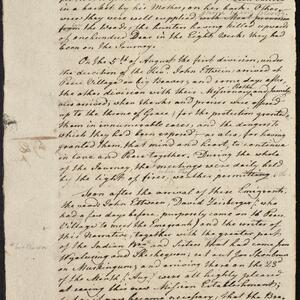 in a basket by his Mother, on her back. Other-
wise they were well supplied with Meat
from the Woods, the Hunters having killed upwards
of one hundred Deer in the Eight weeks they had
been on the Journey.
On the 5th of August the first division, under
the direction of the Revd. John Ettwein arrived at
Peace Village on Beaver, and some days after,
the other division with their Missionary Rothe
were arrived; when thanks and praises were offered
up to the throne of Grace; for the protection granted
them in innumerable cases; and the dangers to
which they had been exposed; as also, for having
granted them, that mind and heart, to continue
in Love and Peace together. During the whole
of the Journey, the meetings were daily held
by the light of fires, weather permitting.
Soon after the arrival of these Emigrants,
the Revd John Ettwein, David Zeisberger, who
had a few days before, purposely come
Village to meet the Emigrants and the writer of
this Narrative, together with the greater part
of the Indian Brn and Sisters that had come from
Wyalusing and Tscheqseqouannunk, set out for
on Muskingum, and arriving there on the 23d
of the Month of Aug; were all highly pleased
at seeing this new Mission Establishment;
became necessary, that the